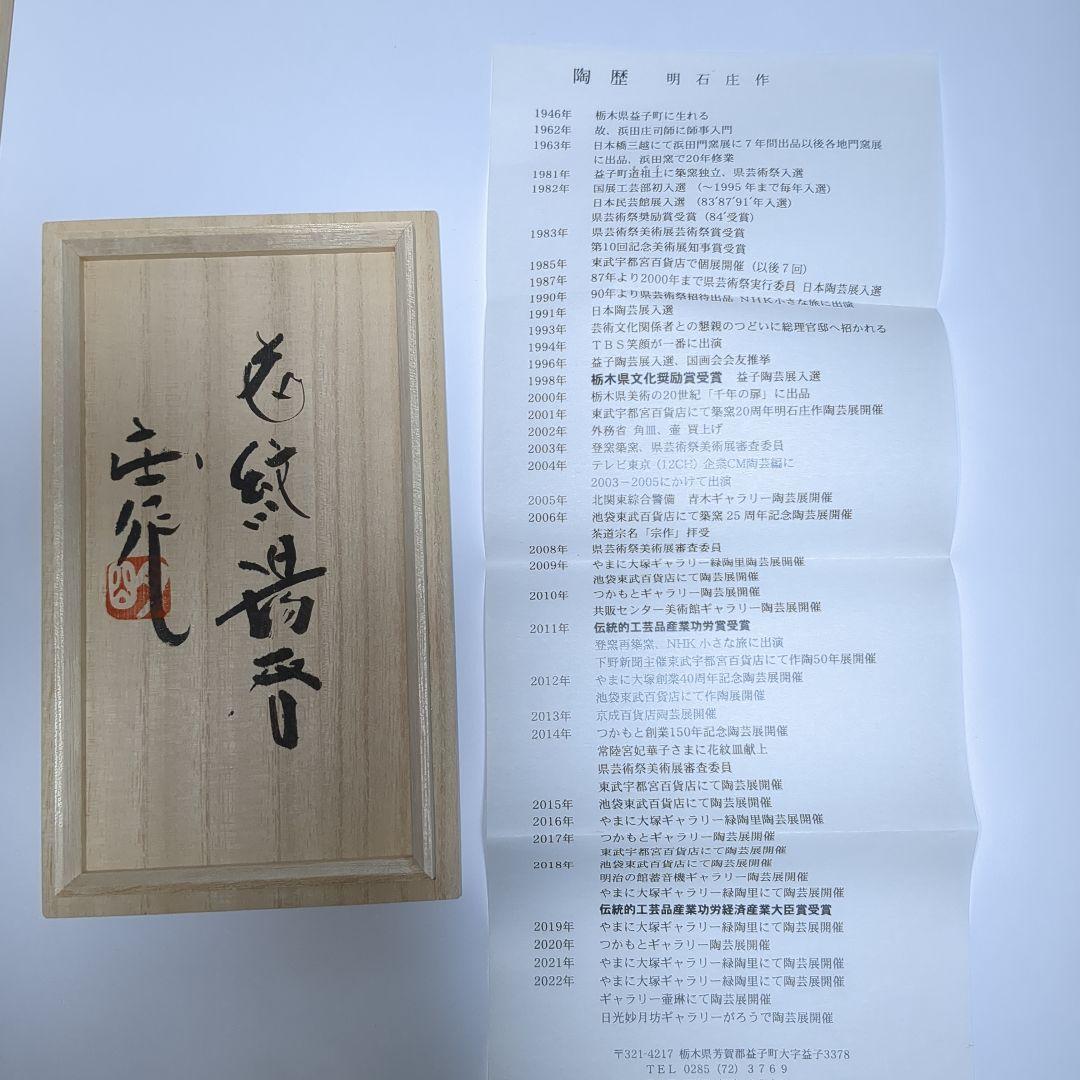 花紋湯呑
庄作
陶歴 明石庄作
1946年 栃木県益子町に生れる
1962年 故、浜田庄司師に師事入門
1963年 日本橋三越にて浜田門窯展に7年間出品以後各地門窯展
に出品、浜田窯で20年修業
1981年 益子町道祖土に築窯独立、県芸術祭入選
1982年 国展工芸部初入選 (〜1995年まで毎年入選)
日本民芸館展入選 (83'87'91'年入選)
県芸術祭奨励賞受賞 (84'受賞)
1983年 県芸術祭美術展芸術祭賞受賞
第10回記念美術展知事賞受賞
1985年 東武宇都宮百貨店で個展開催 (以後7回)
1987年 87年より2000年まで県芸術祭実行委員 日本陶芸展入選
1990年 90年より県芸術祭招待出品 NHK小さな旅に出演
1991年 日本陶芸展入選
1993年 芸術文化関係者との懇親のつどいに総理官邸へ招かれる
1994年 TBS笑顔が一番に出演
1996年 益子陶芸展入選、国画会会友推挙
1998年 栃木県文化奨励賞受賞 益子陶芸展入選
2000年 栃木県美術の20世紀「千年の扉」に出品
2001年 東武宇都宮百貨店にて築窯20周年明石庄作陶芸展開催
2002年 外務省 角皿、壷 買上げ
2003年 登窯築窯、県芸術祭美術展審査委員
2004年 テレビ東京 (12CH) 企業CM陶芸編に
2003−2005にかけて出演
2005年 北関東綜合警備 青木ギャラリー陶芸展開催
2006年 池袋東武百貨店にて築窯25周年記念陶芸展開催
茶道宗名「宗作」拝受
2008年 県芸術祭美術展審査委員
2009年 やまに大塚ギャラリー緑陶里陶芸展開催
池袋東武百貨店にて陶芸展開催
2010年 つかもとギャラリー陶芸展開催
共販センター美術館ギャラリー陶芸展開催
2011年 伝統的工芸品産業功労賞受賞
登窯再築窯、NHK小さな旅に出演
下野新聞主催東武宇都宮百貨店にて作陶50年展開催
2012年 やまに大塚創業40周年記念陶芸展開催
池袋東武百貨店にて作陶展開催
2013年 京成百貨店陶芸展開催
2014年 つかもと創業150年記念陶芸展開催
常陸宮妃華子さまに花紋皿献上
県芸術祭美術展審査委員
東武宇都宮百貨店にて陶芸展開催
2015年 池袋東武百貨店にて陶芸展開催
2016年 やまに大塚ギャラリー緑陶里陶芸展開催
2017年 つかもとギャラリー陶芸展開催
東武宇都宮百貨店にて陶芸展開催
2018年 池袋東武百貨店にて陶芸展開催
明治の館蓄音機ギャラリー陶芸展開催
やまに大塚ギャラリー緑陶里にて陶芸展開催
伝統的工芸品産業功労経済産業大臣賞受賞
2019年 やまに大塚ギャラリー緑陶里にて陶芸展開催
2020年 つかもとギャラリー陶芸展開催
2021年 やまに大塚ギャラリー緑陶里にて陶芸展開催
2022年 やまに大塚ギャラリー緑陶里にて陶芸展開催
ギャラリー壷琳にて陶芸展開催
日光妙月坊ギャラリーがろうで陶芸展開催
〒321-4217 栃木県芳賀郡益子町大字益子3378
TEL 0285 (72) 3769